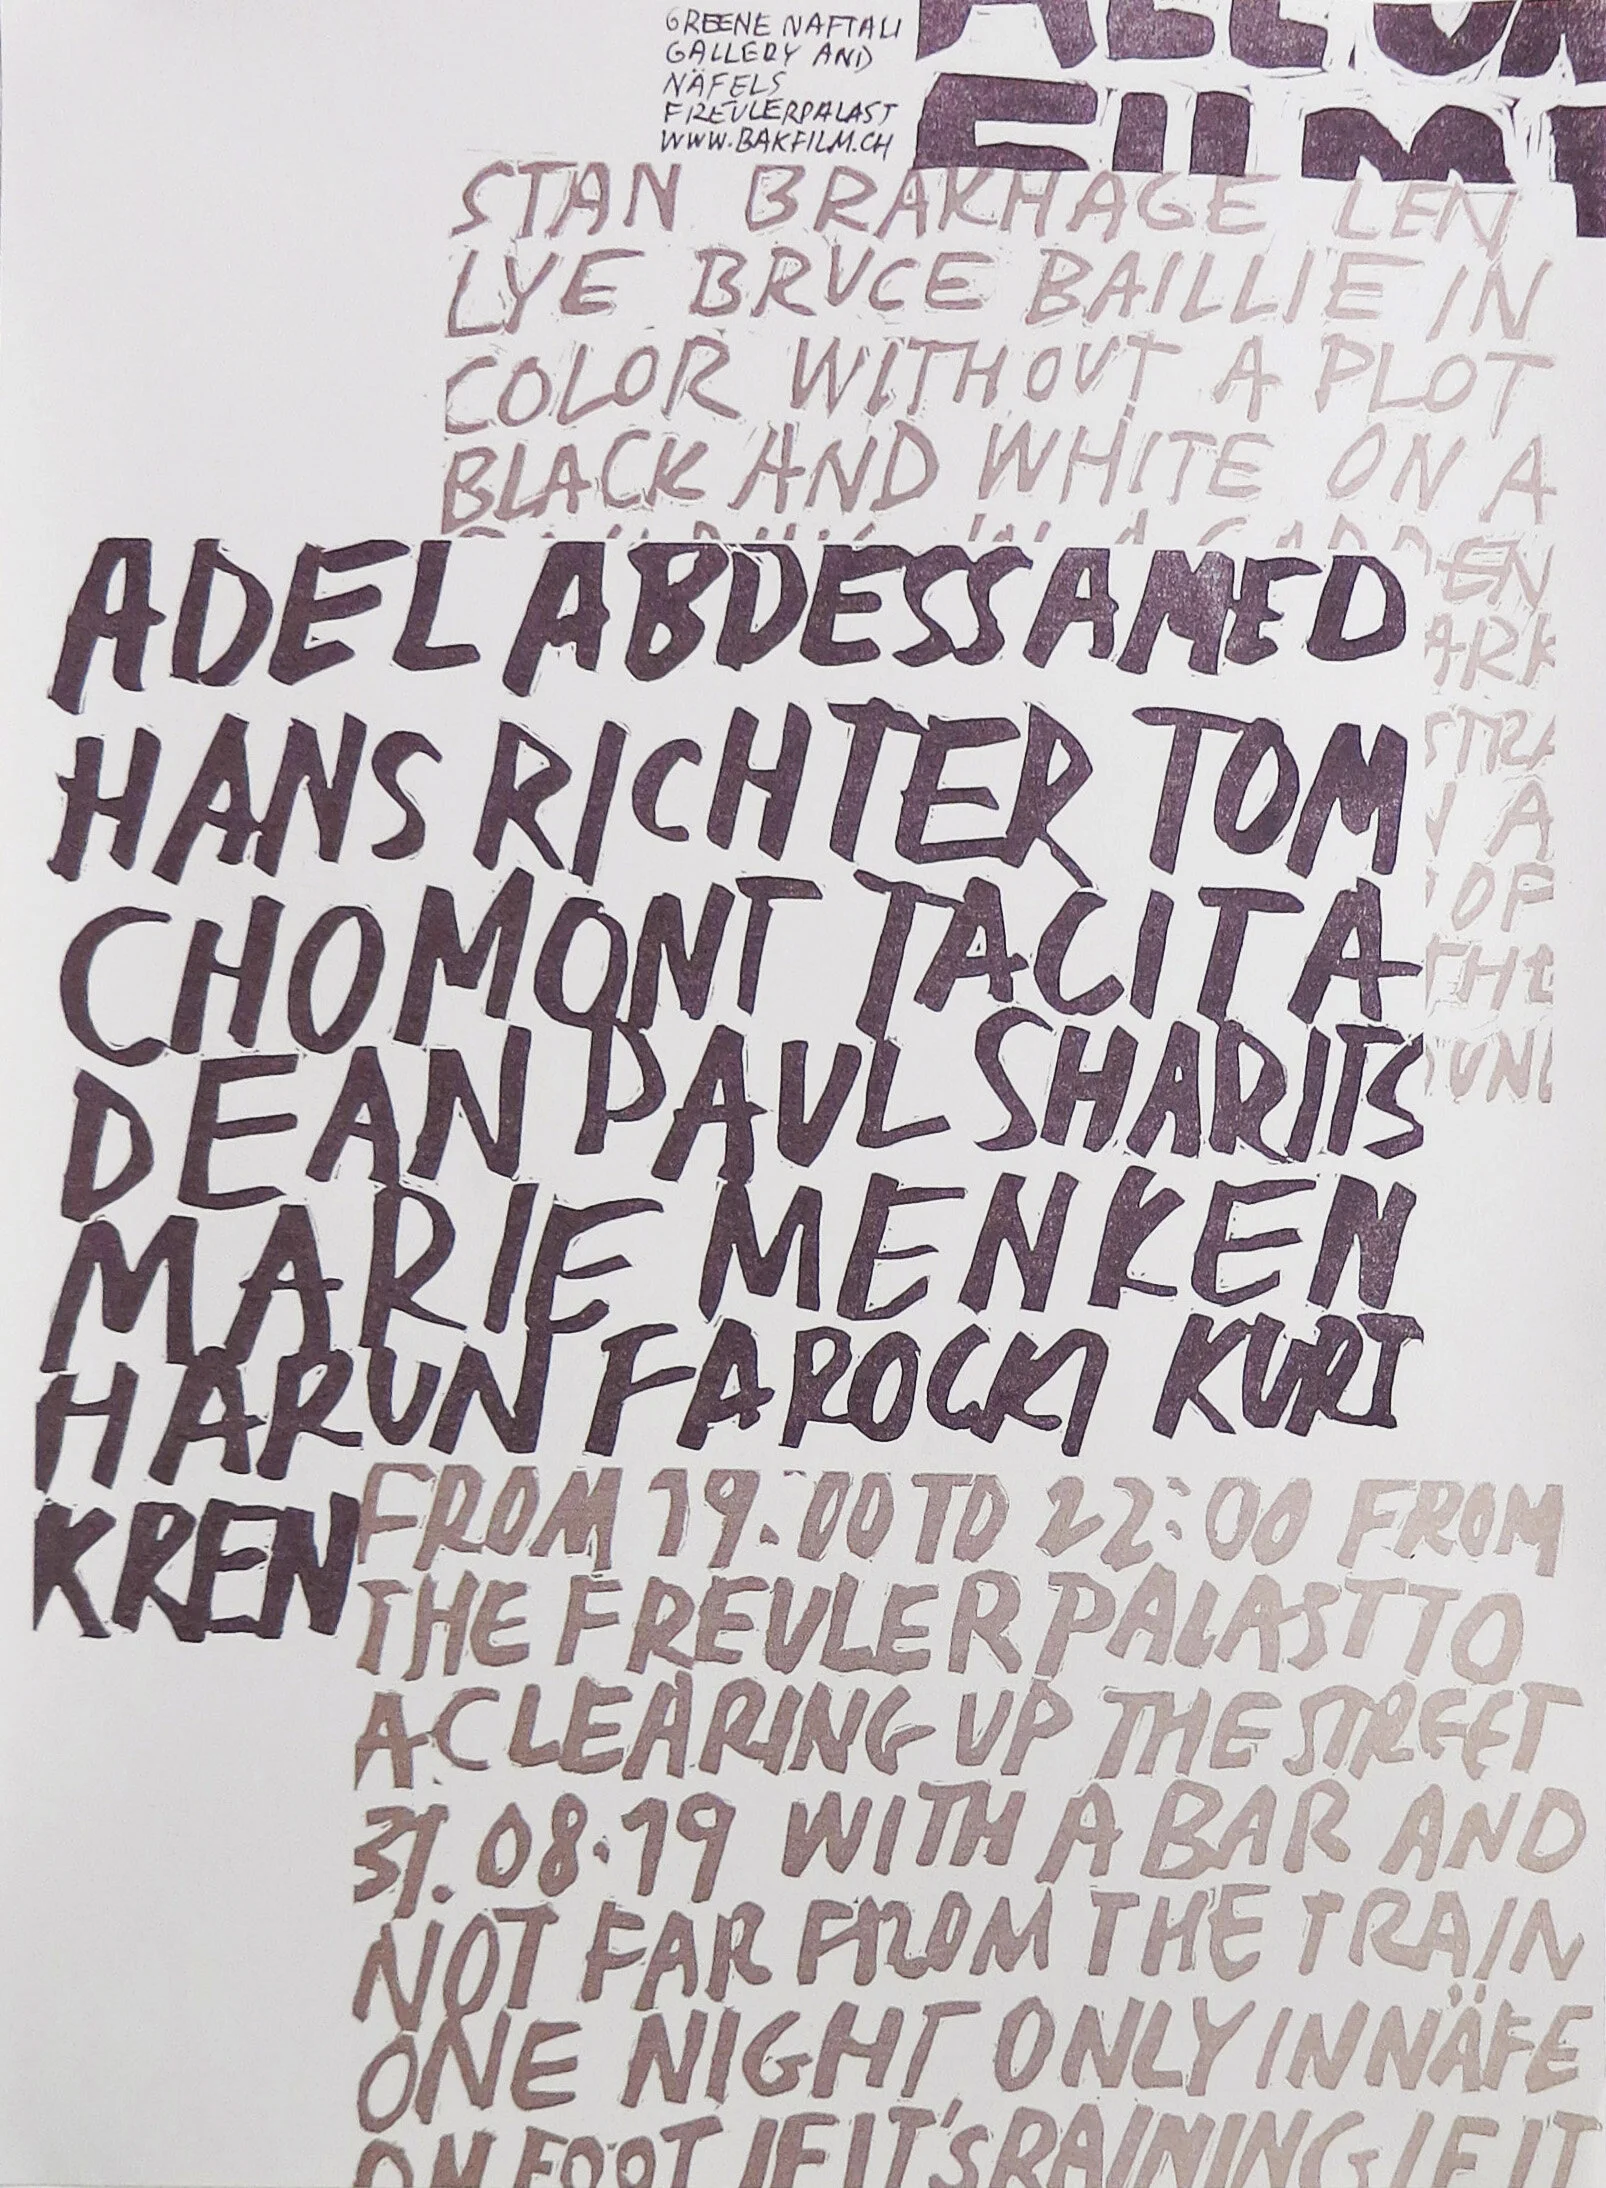 GREENE NAFTALI
GALLERY AND
NÄFELS
FREULERPALAST
WWW.BAKFILM.CH
ALL ON
FILM
STAN BRAKHAGE LEN
LYE BRUCE BAILLIE IN
COLOR WITHOUT A PLOT
BLACK AND WHITE ON A
IN A GARDEN
ADEL ABDESSAMED
HANS RICHTER TOM
CHOMONT TACITA
DEAN PAUL SHARITS
MARIE MENKEN
HARUN FAROCKI KURT
KREN
A
OF
THE
FROM 19:00 TO 22:00 FROM
THE FREULERPALAST TO
A CLEARING UP THE STREET
31.08.19 WITH A BAR AND
NOT FAR FROM THE TRAIN
ONE NIGHT ONLY IN NÄFE
ON FOOT IF IT'S RAINING IF IT